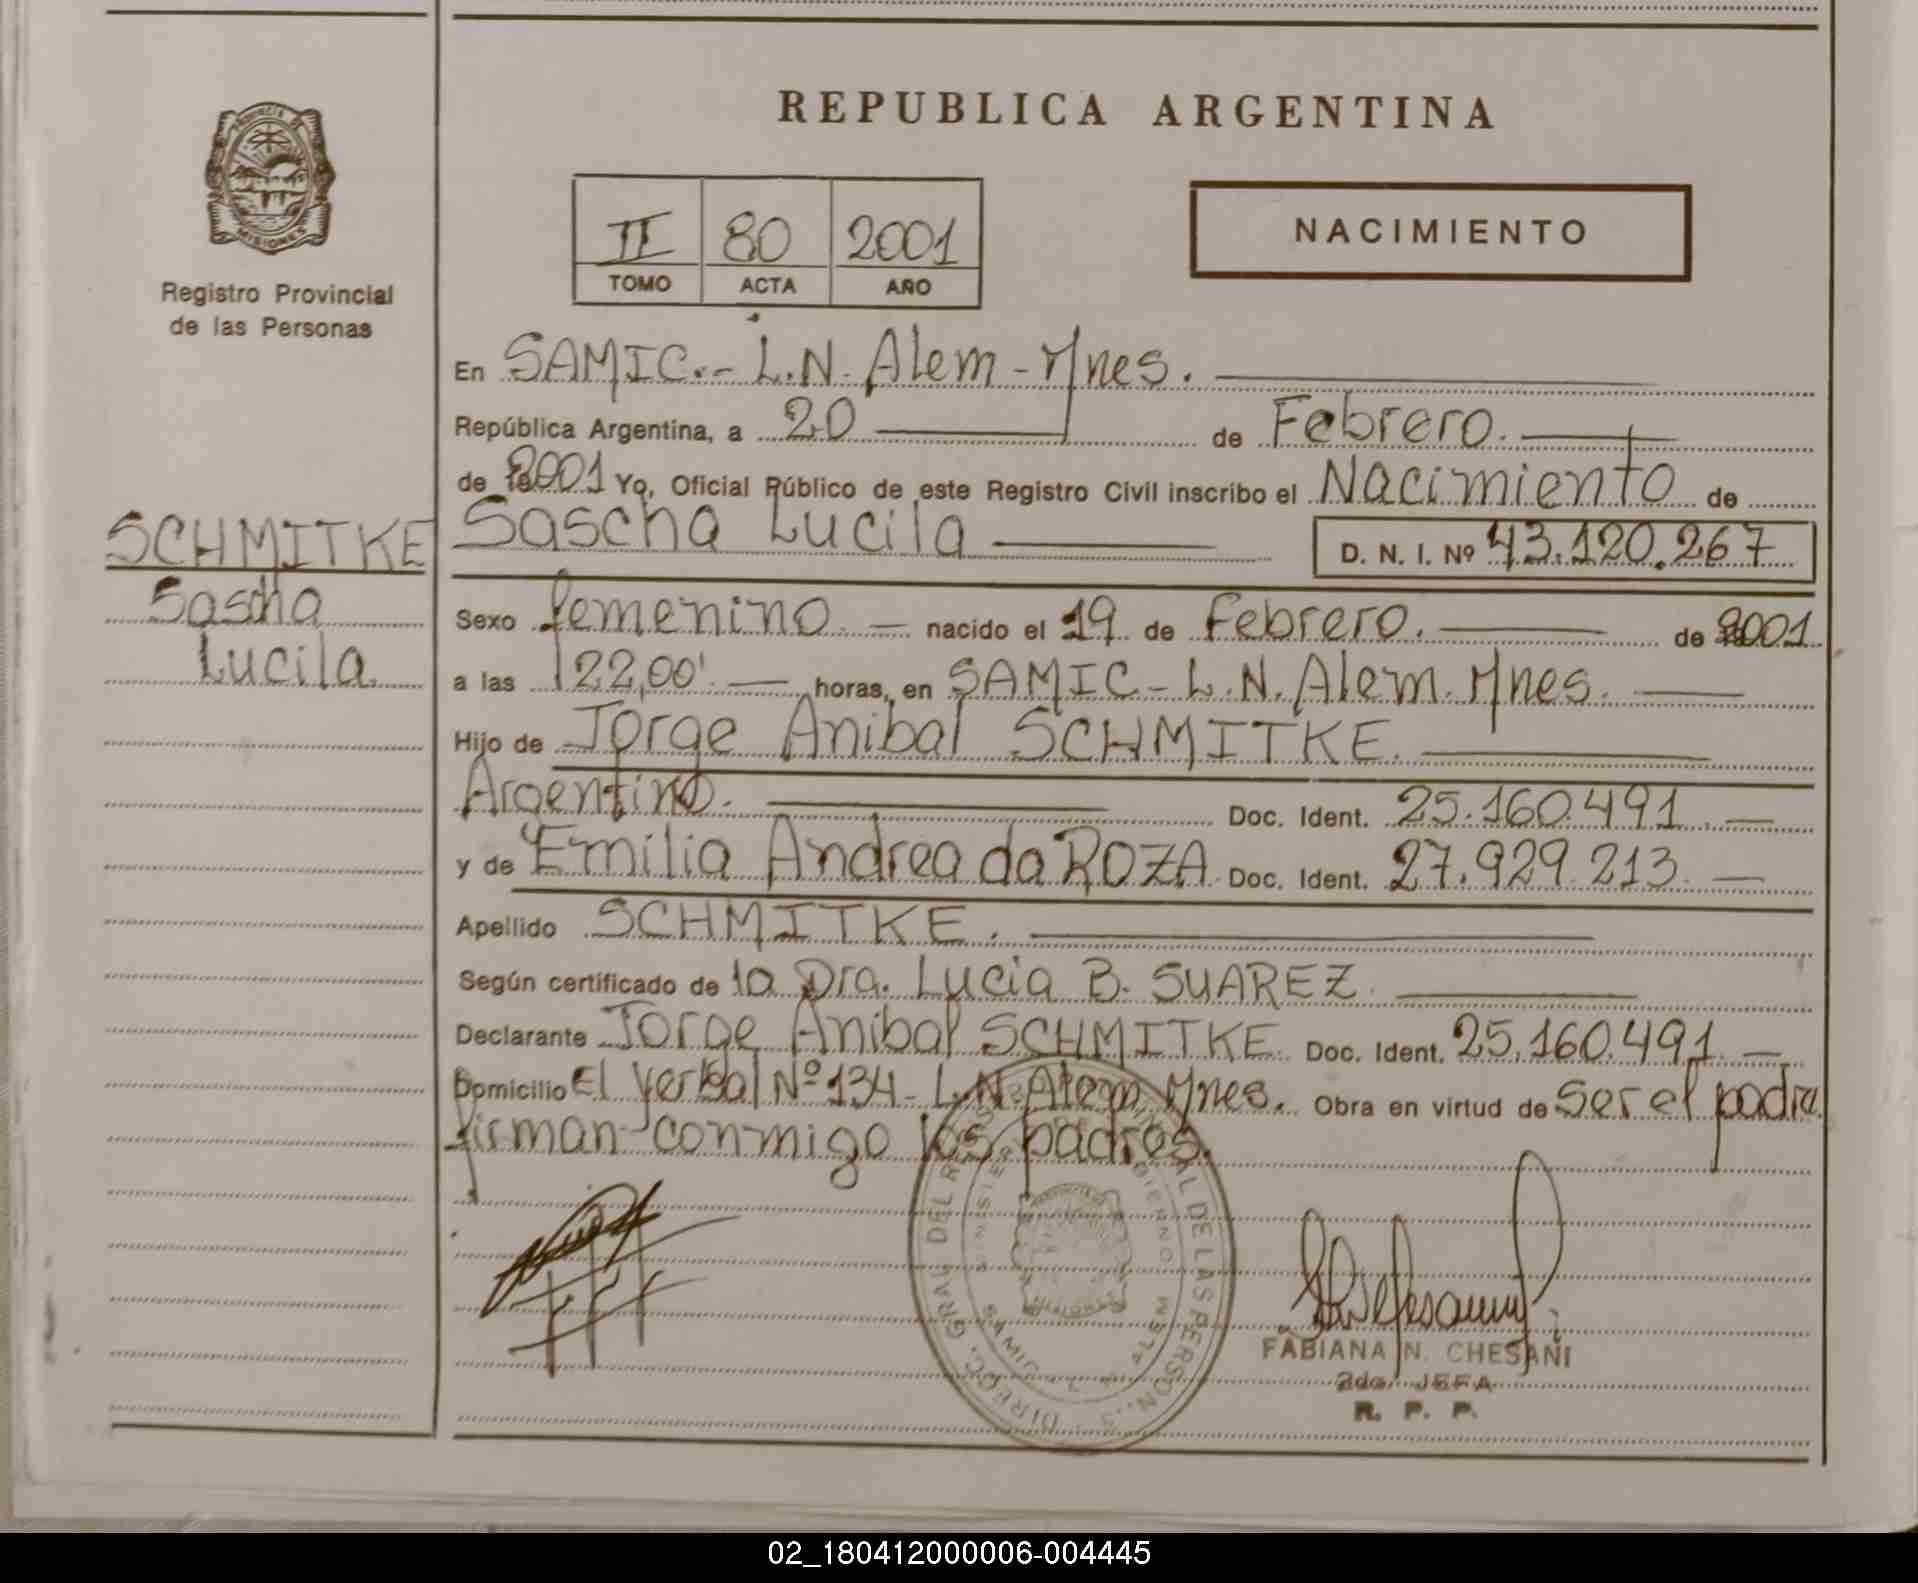 REPUBLICA ARGENTINA
PROVINCIA DE
MISIONES
Registro Provincial
de las Personas
II 80 2001
TOMO ACTA AÑO
NACIMIENTO
En SAMIC.- L.N. Alem - Mnes.
República Argentina, a 20 de Febrero.
de 2001 Yo, Oficial Público de este Registro Civil inscribo el Nacimiento de
SCHMITKE
Sascha
Lucila
Sascha Lucila D. N. I. Nº 43.120.267
Sexo femenino. nacido el 19 de Febrero. de 2001
a las 22,00'. horas, en SAMIC - L.N. Alem. Mnes.
Hijo de Jorge Anibal SCHMITKE.
Argentino. Doc. Ident. 25.160.491
y de Emilia Andrea da ROZA Doc. Ident. 27.929.213
Apellido SCHMITKE.
Según certificado de la Dra. Lucia B. SUAREZ.
Declarante Jorge Anibal SCHMITKE Doc. Ident. 25.160.491
Domicilio El Yerbal Nº 134 - L.N. Alem Mnes. Obra en virtud de ser el padre
firman conmigo los padres.
DEL DE LAS PERSON
MISIONES
FABIANA N. CHESANI
2da. JEFA
R. P. P.
02_180412000006-004445